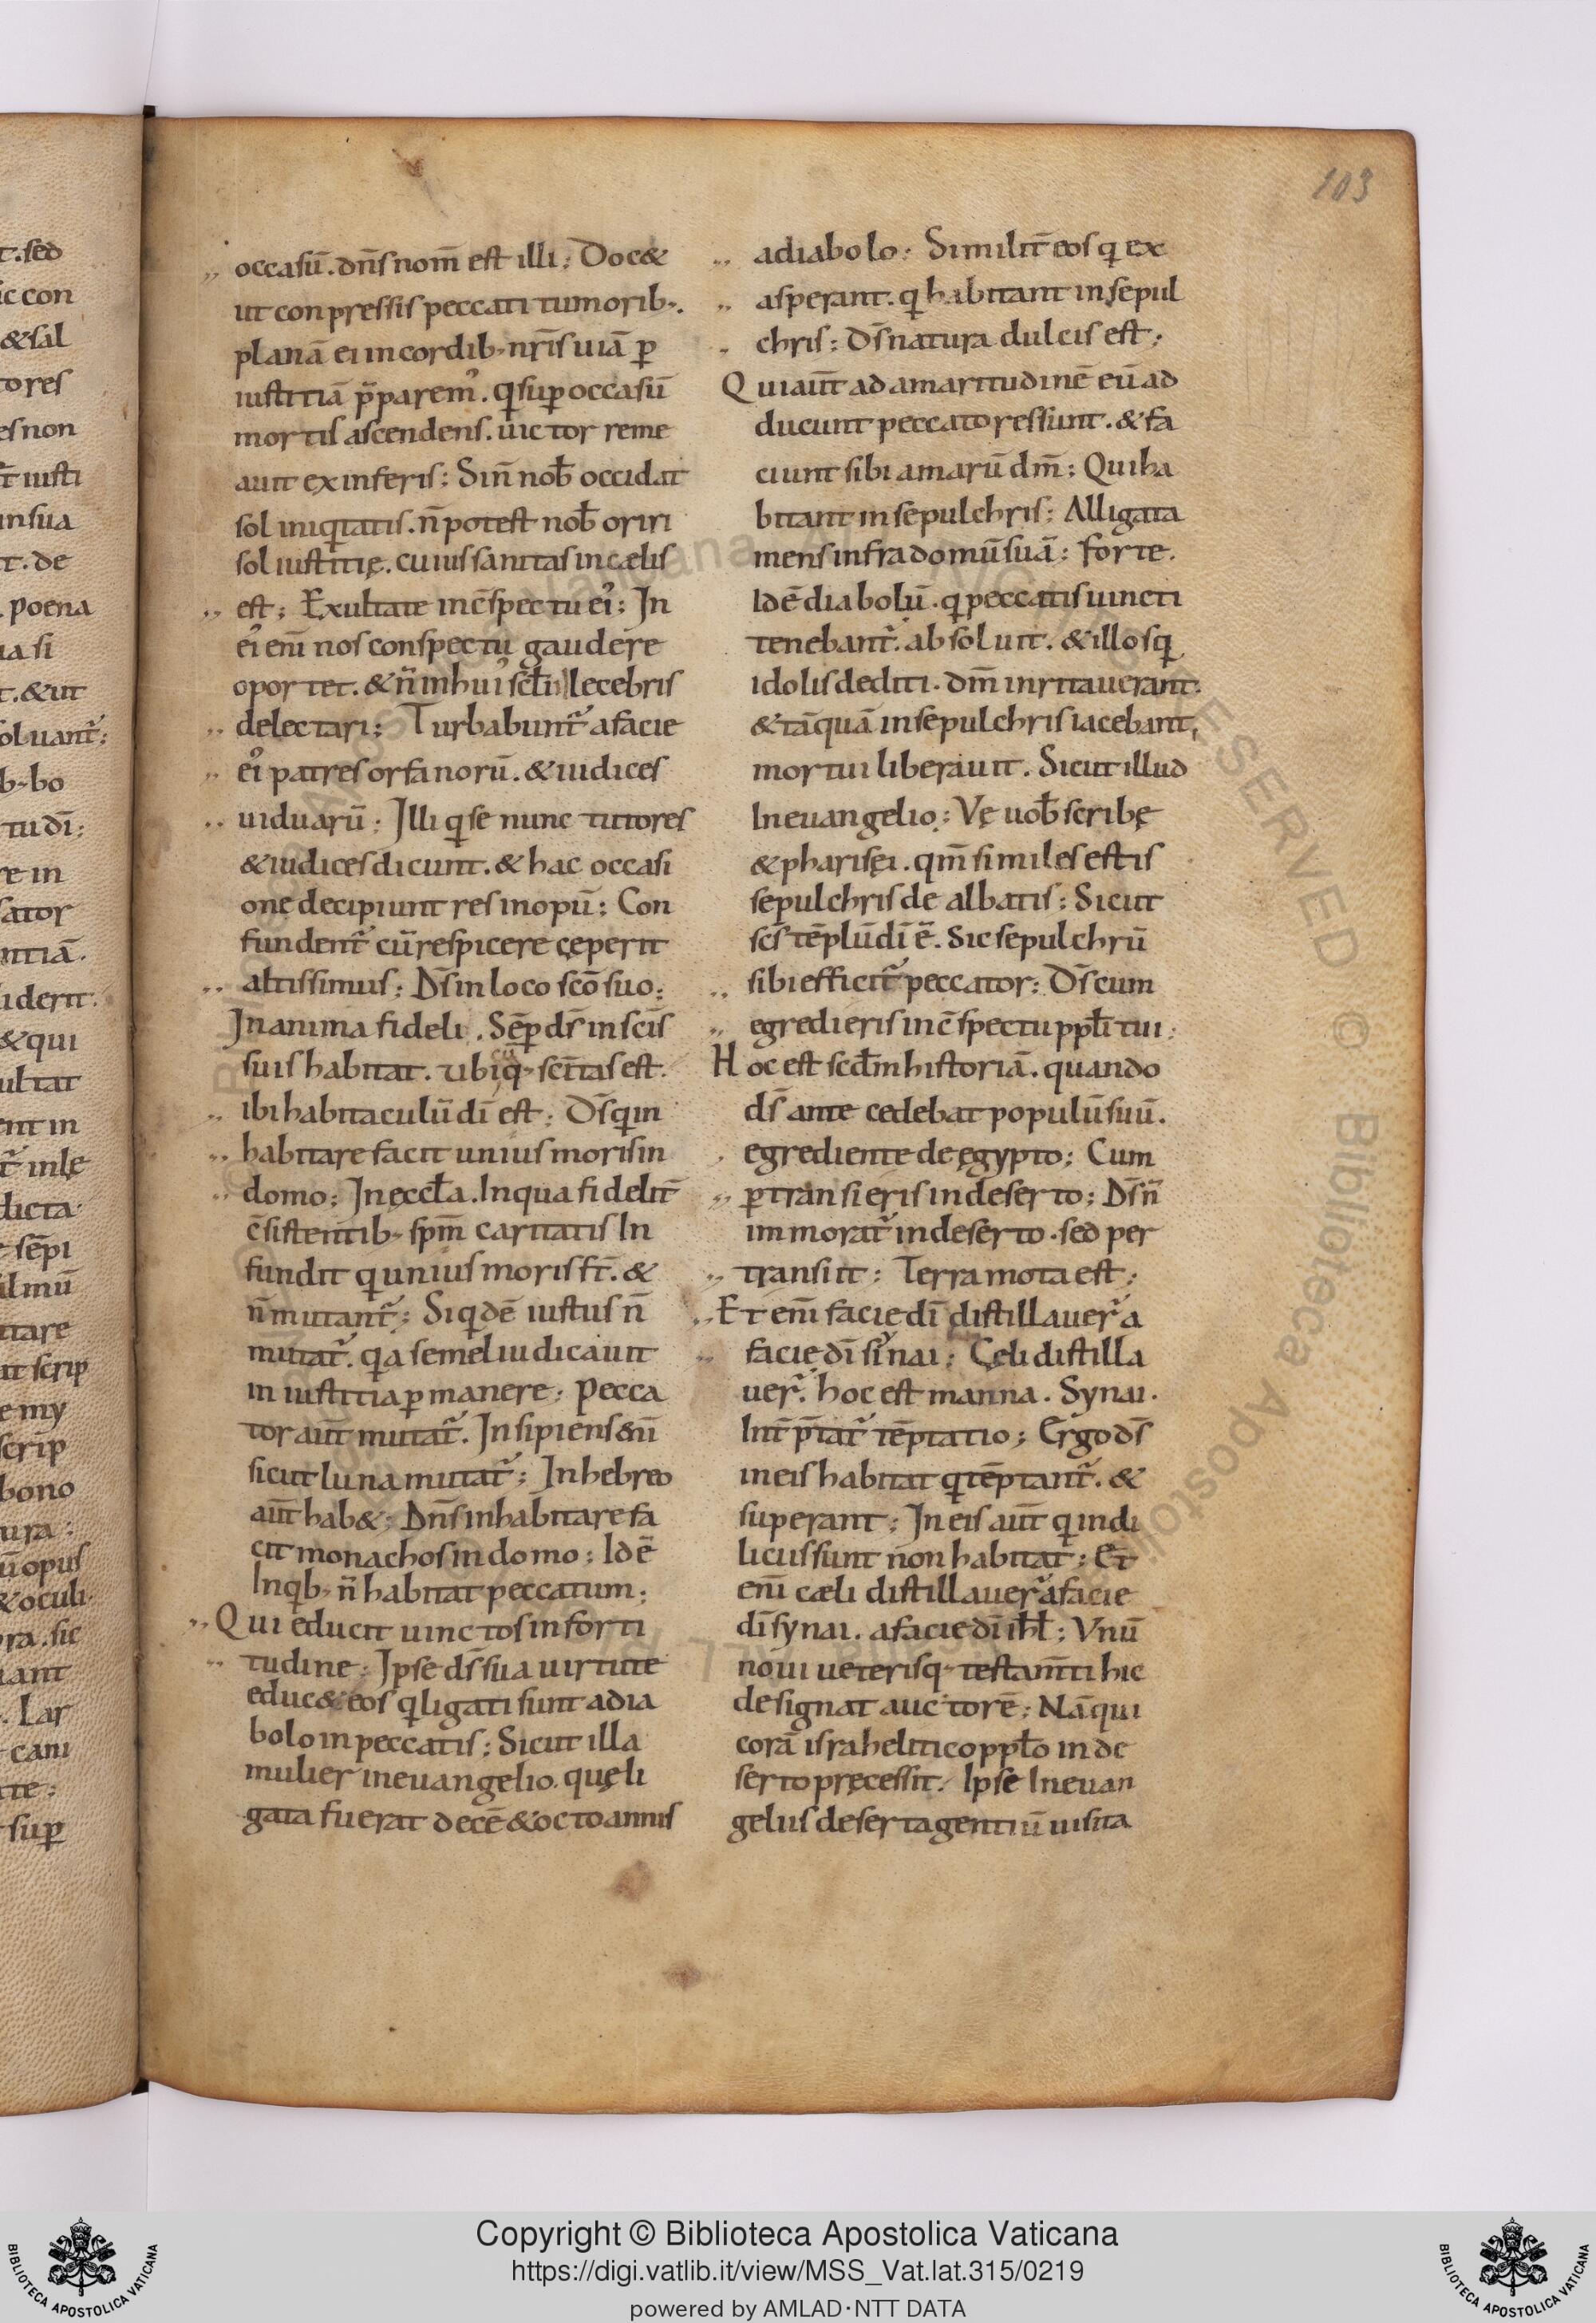 103
occasū. dn̄s nom̄ est illi; Doc&
ut conpressis peccati tumorib;.
planā ei in cordib; nr̄is uiā p̱
iustitiā p̄parem᾽. q̱ sup̱ occasū
mortis ascendens. uictor reme
auit ex inferis; Sin̄ nob̄ occidat
sol iniqitatis. n̄ potest nob̄ oriri
sol iustitię. cuius sanitas in cælis
est; Exultate in c̄spectu ei᾽; In
ei᾽ eni᷄ nos conspectu gaudere
oportet. & n̄ in hui᾽ sc̄li illecebris
delectari; Turbabunt᷑ a facie
ei᾽ patres orfanorū. & iudices
uiduarū; Illi q̱ se nunc tutores
& iudices dicunt. & hac occasi
one decipiunt res inopū; Con
fundent᷑ cū respicere cęperit
altissimus; Ds̄ in loco sc̄o suo;
In anima fideli. Sēp̱ ds̄ in sc̄is
suis habitat. ubiq̄; sc̄itas est.
ibi habitaculū dī est; Ds̄ q̱ in
habitare facit unius moris in
domo; In ęccl̄a. In qua fidelit̄
c̄sistentib; sp̄m caritatis In
fundit q̱ unius moris st̄. &
n̄ mutant᷑; Siq̱dē iustus n̄
mutat᷑. q̱a semel iudicauit
in iustitia p̱manere; Pecca
tor aut̄ mutat᷑. Insipiens eni᷄
sicut luna mutat᷑; In hebreo
aut̄ hab&; Dn̄s inhabitare fa
cit monachos in domo; Idē
In q̱b; n̄ habitat peccatum;
Qui educit uinctos in forti
tudine; Ipse ds̄ sua uirtute
educ& eos q̱ ligati sunt a dia
bolo in peccatis; Sicut illa
mulier in euangelio. quę li
gata fuerat decē & octo annis
a diabolo; Similit̄ eos q̱ ex
asperant. q̱ habitant in sepul
chris; Ds̄ natura dulcis est;
Qui aut̄ ad amaritudinē eū ad
ducunt peccatores sunt. & fa
ciunt sibi amarū dm̄; Qui ha
bitant in sepulchris; Alligata
mens infra domū suā; forte.
Idē diabolū. q̱ peccatis uincti
tenebant᷑. absoluit. & illos q̱
idolis dediti. dm̄ inritauerant.
& tāquā in sepulchris iacebant,
mortui liberauit. Sicut illud
In euangelio; Vę uob̄ scribę
& pharisęi. qm̄ similes estis
sepulchris de albatis; Sicut
sc̄s tēplū dī ē. Sic sepulchrū
sibi efficit᷑ peccator; Ds̄ cum
egredieris in c̄spectu ppl̄i tui;
Hoc est scd̄m historiā. quando
ds̄ ante cedebat populū suū.
egrediente de ęgypto; Cum
p̱transieris in deserto; Ds̄ n̄
immorat᷑ in deserto. sed per
transiit; Terra mota est;
Et eni᷄ facie dī distillauer᷑ a
facie dī sinai; Cęli distilla
uer᷑. hoc est manna. Synai.
Int̄p̄tat᷑ tēptatio; Ergo ds̄
in eis habitat q̱ tēptant᷑. &
superant; In eis aut̄ q̱ in di
liciis sunt non habitat; Et
eni᷄ cæli distillauer᷑ a facie
dī synai. a facie dī ihl̄; Vnū
noui ueterisq; testam̄ti hic
designat auctorē; Nā qui
corā israhelitico ppl̄o in de
serto pręcessit. Ipse In euan
geliis deserta gentiū uisita
Copyright © Biblioteca Apostolica Vaticana
https://digi.vatlib.it/view/MSS_Vat.lat.315/0219
powered by AMLAD·NTT DATA